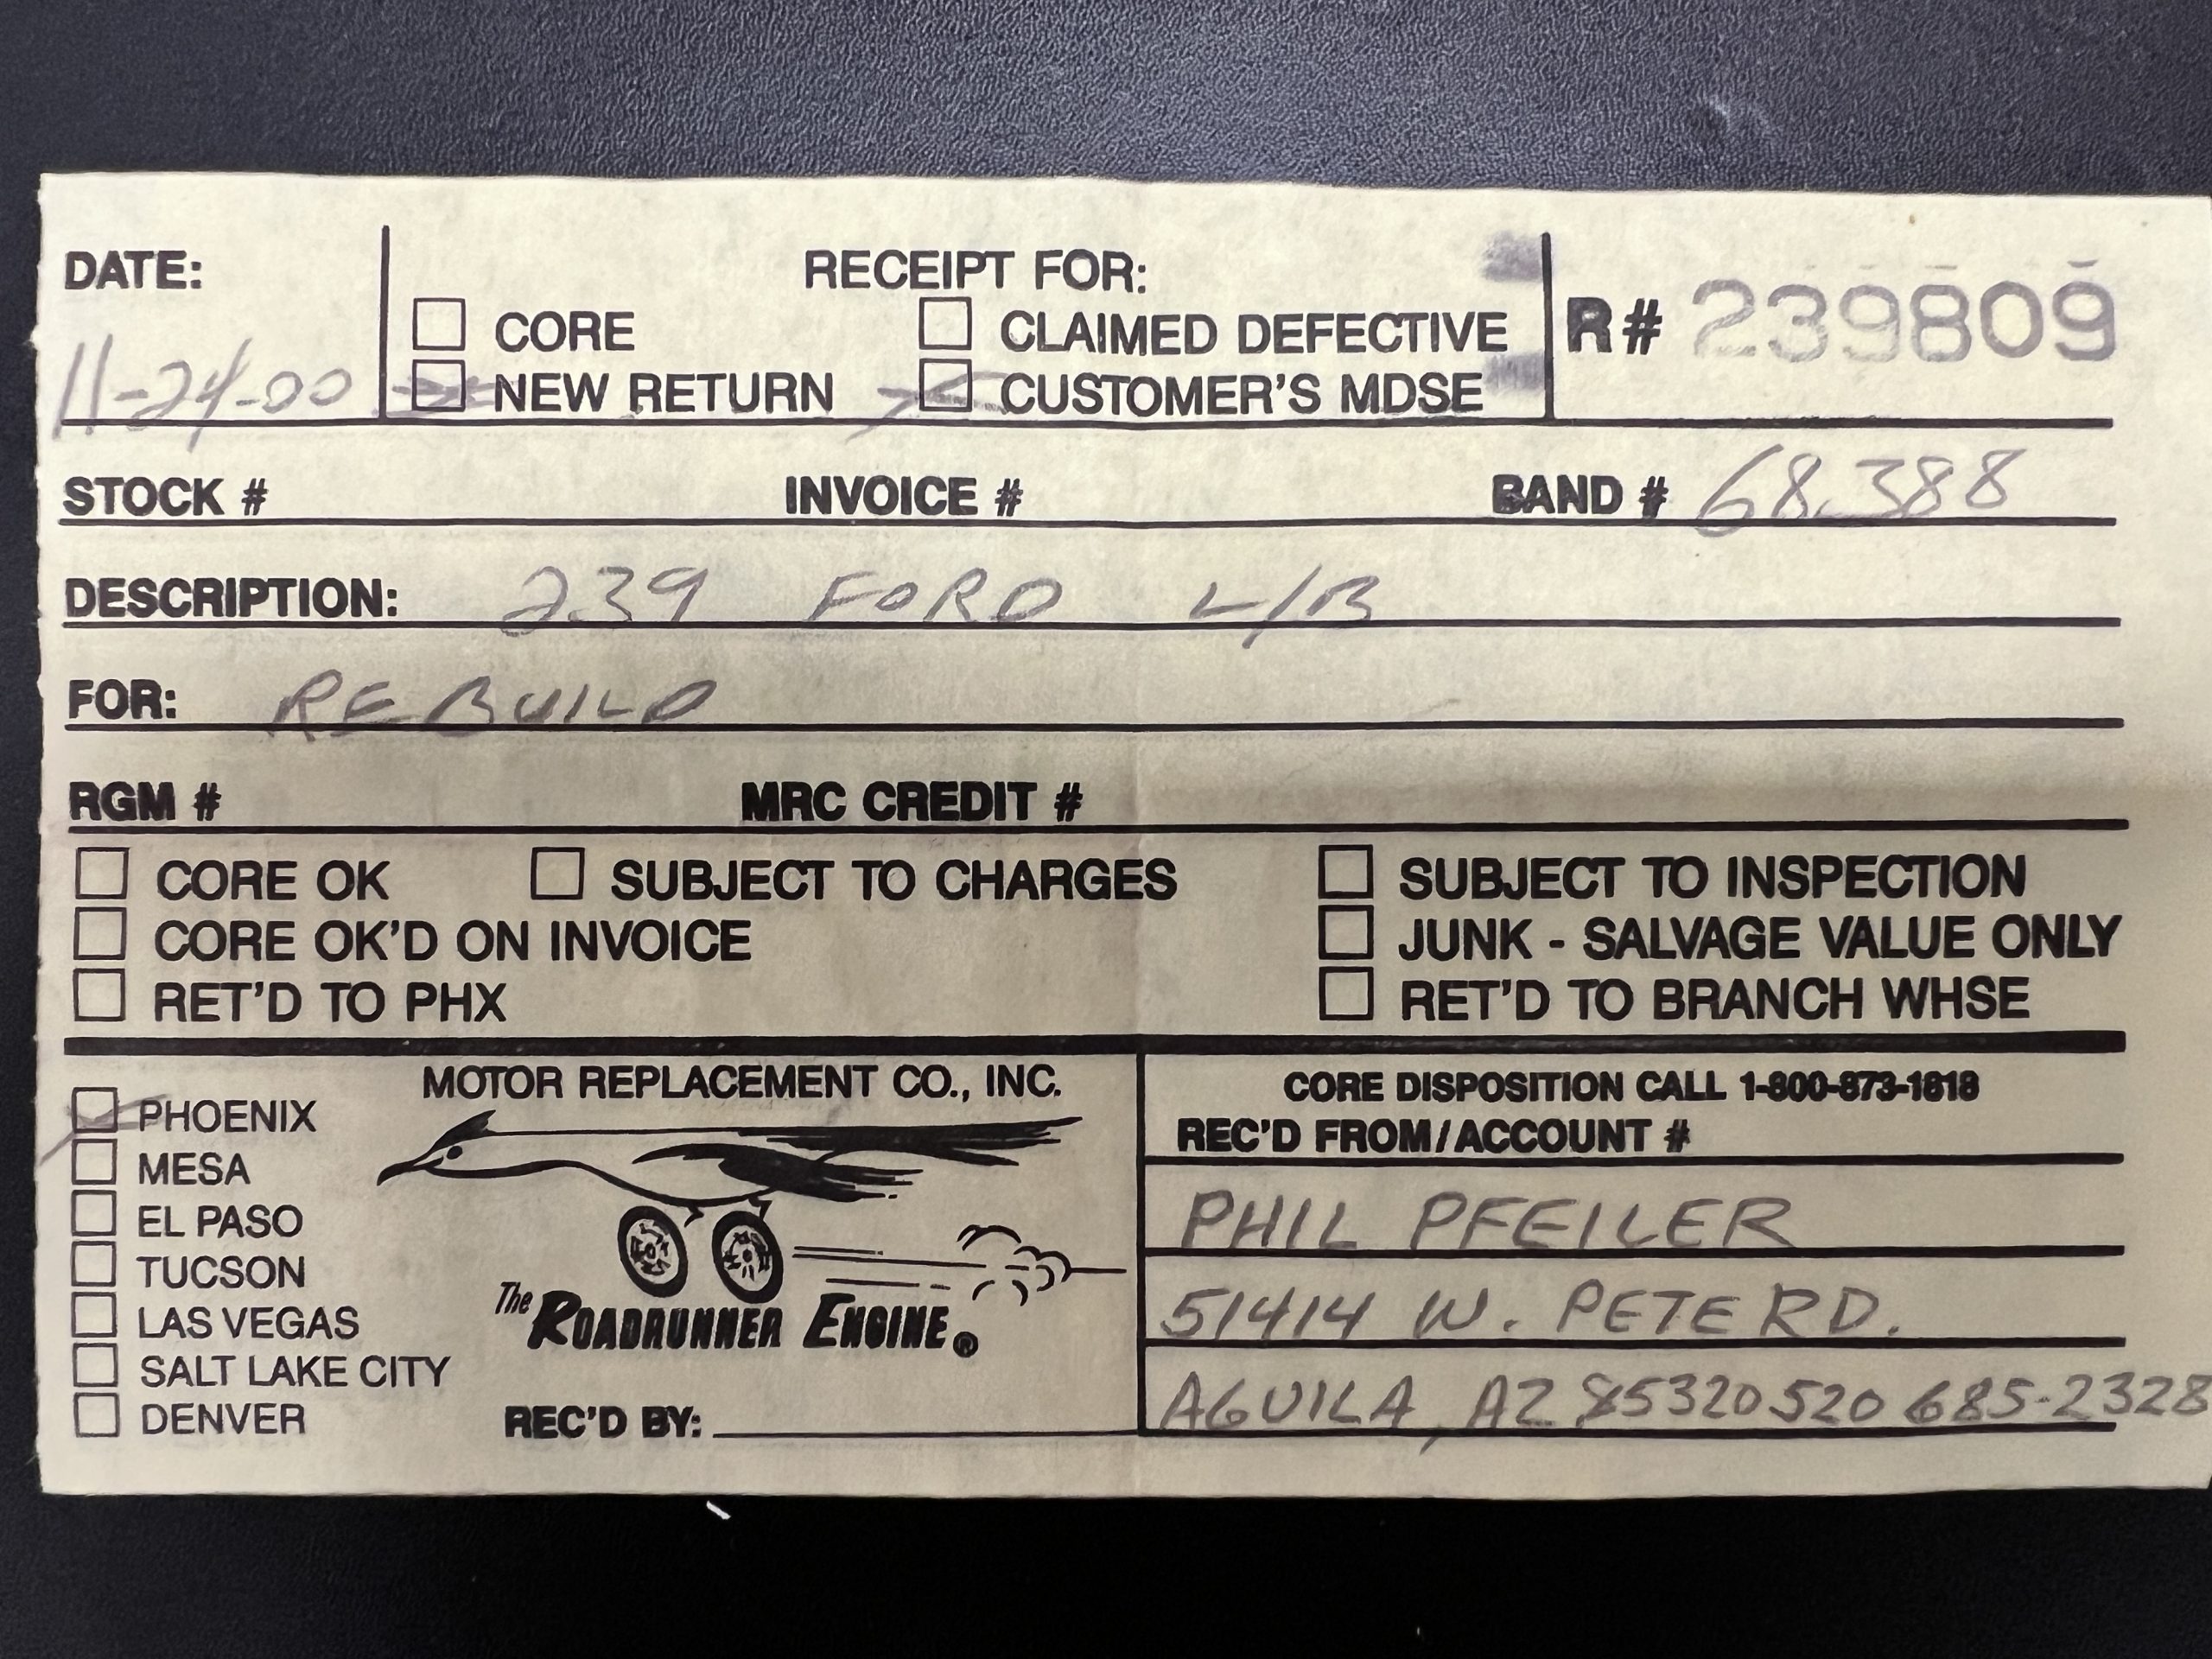 DATE: RECEIPT FOR: R# 239809
☐ CORE ☐ CLAIMED DEFECTIVE
11-24-00 ☐ NEW RETURN ☒ CUSTOMER'S MDSE
STOCK # INVOICE # BAND # 68388
DESCRIPTION: 239 FORD L/B
FOR: REBUILD
RGM # MRC CREDIT #
☐ CORE OK ☐ SUBJECT TO CHARGES ☐ SUBJECT TO INSPECTION
☐ CORE OK'D ON INVOICE ☐ JUNK - SALVAGE VALUE ONLY
☐ RET'D TO PHX ☐ RET'D TO BRANCH WHSE
☒ PHOENIX
☐ MESA
☐ EL PASO
☐ TUCSON
☐ LAS VEGAS
☐ SALT LAKE CITY
☐ DENVER
MOTOR REPLACEMENT CO., INC.
The ROADRUNNER ENGINE®
REC'D BY:
CORE DISPOSITION CALL 1-800-873-1818
REC'D FROM/ACCOUNT #
PHIL PFEILER
51414 W. PETE RD.
AGUILA, AZ 85320 520 685-2328